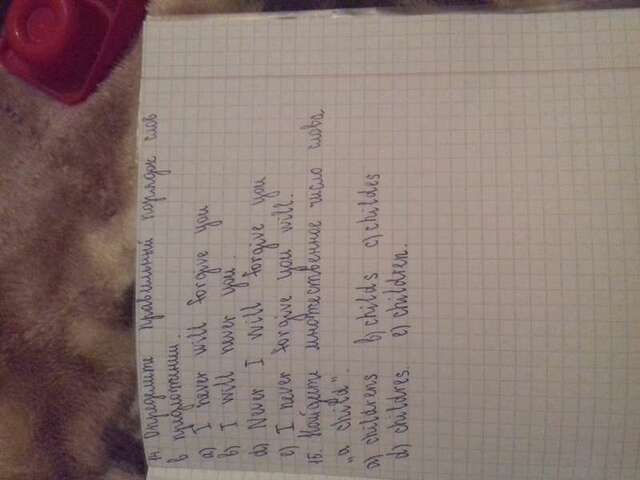 14. Определите правильный порядок слов
в предложении.
a) I never will forgive you
b) I will never you.
d) Never I will forgive you
e) I never forgive you will.
15. Найдите множественное число слова
„a child".
a) childrens b) childs c) childes
d) childres. e) children.